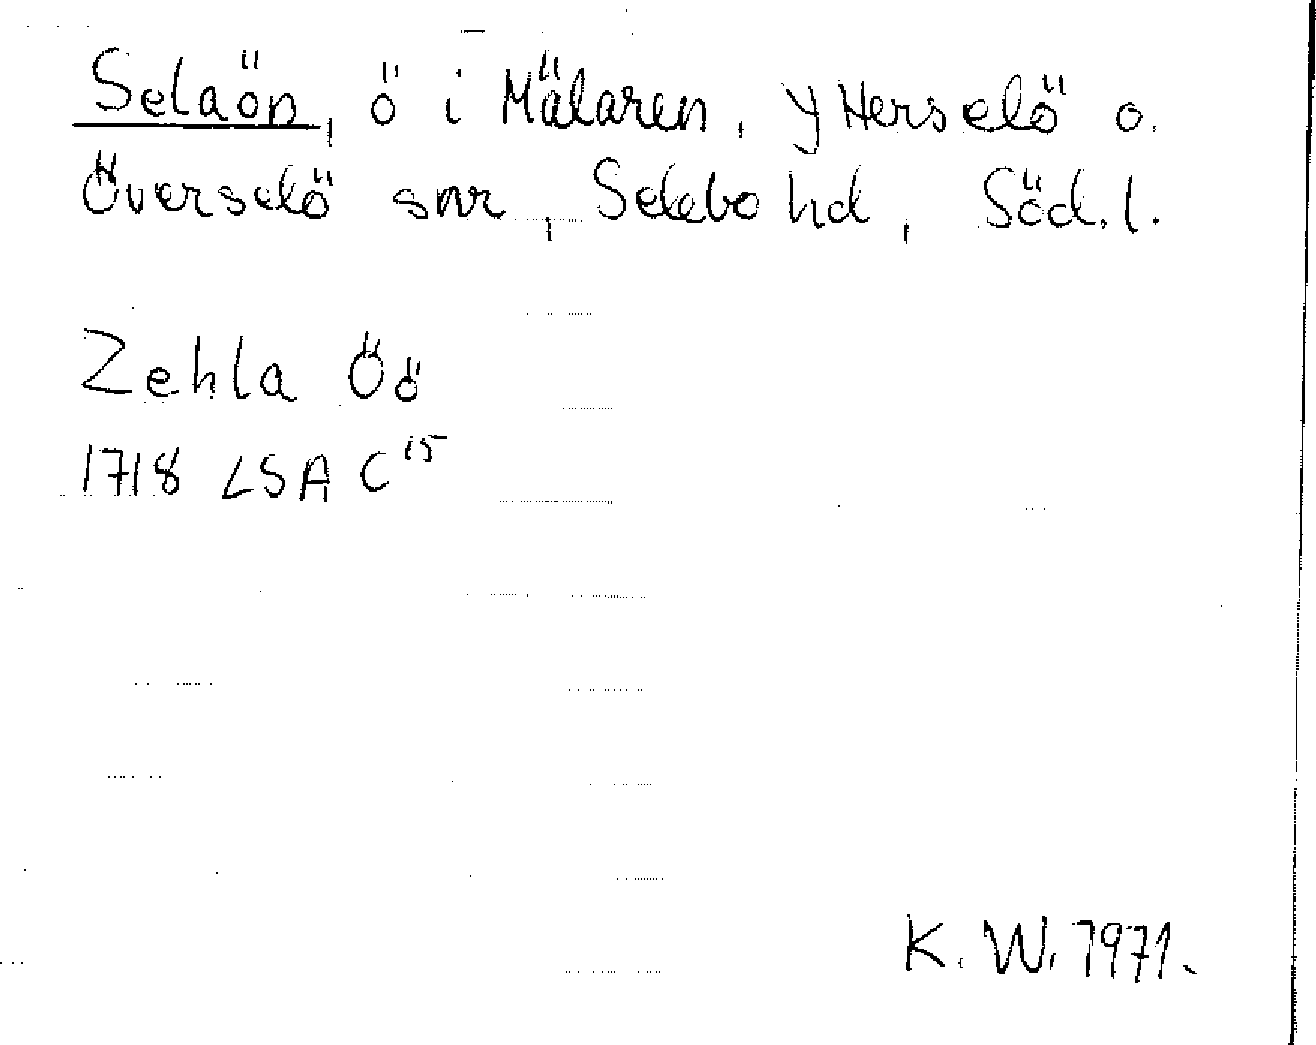 Selaön, ö i Mälaren, Ytterselö o.
Överselö snr, Selebo hd, Söd. l.
Zehla Öö
1718 LSA C15
K. W. 1971.